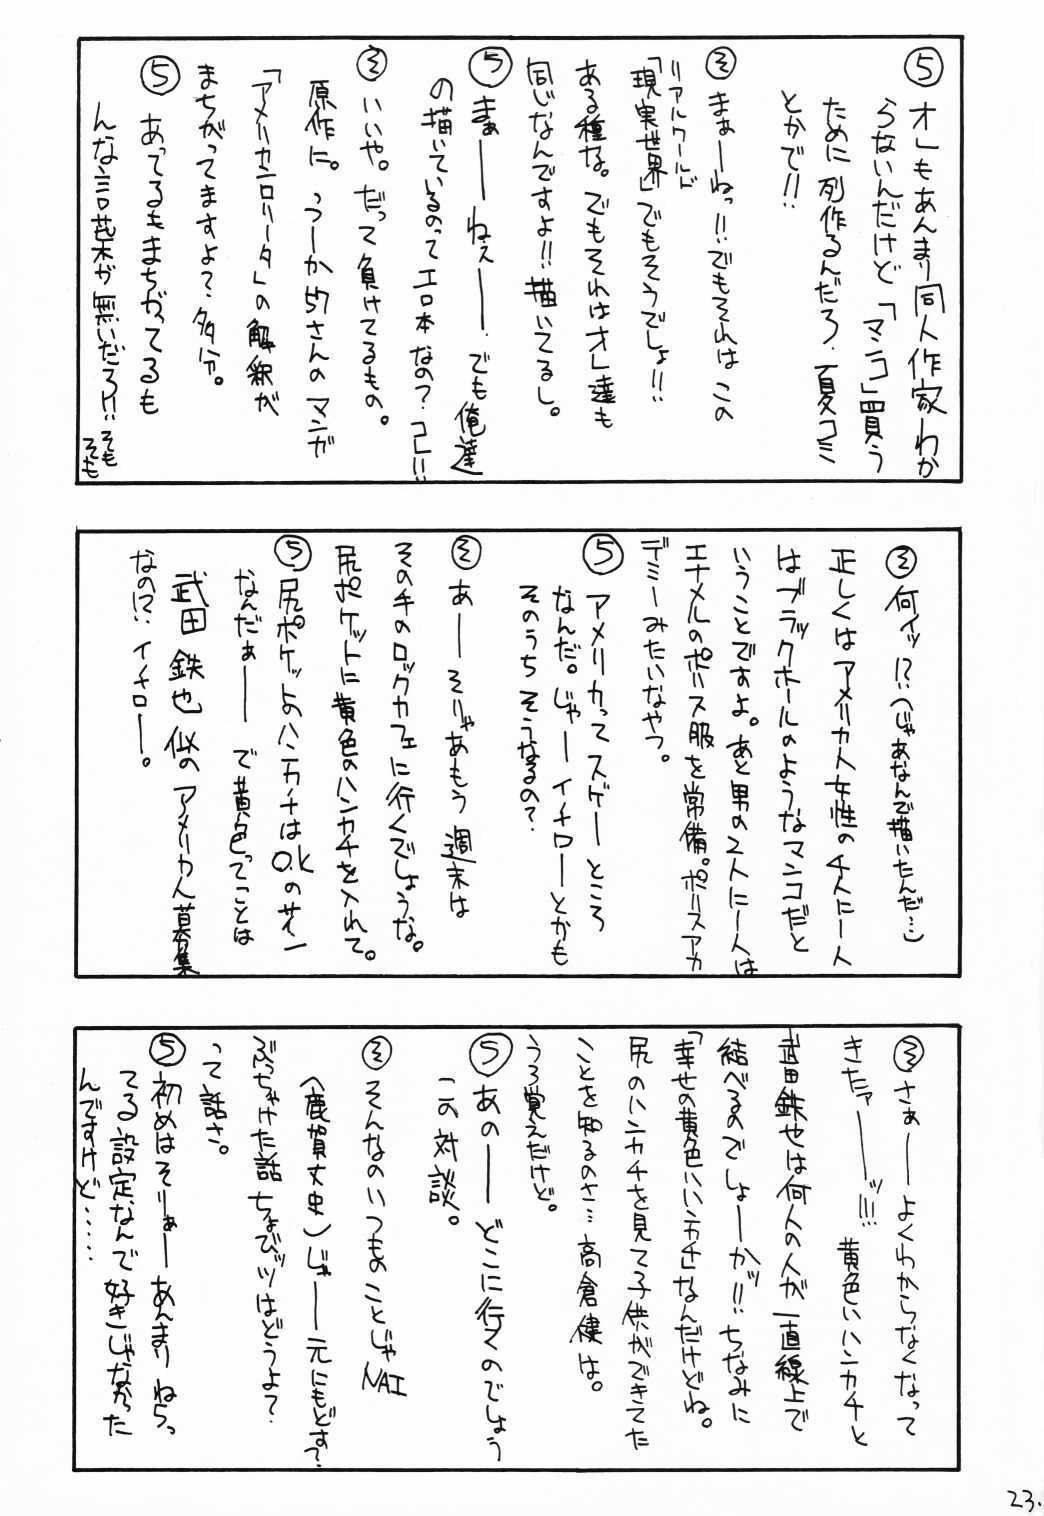 ⑤ オレもあんまり同人作家わか
らないんだけど「マンコ」買う
ために列作るんだろ.夏コミ
とかで!!
㋞ まぁーねっ!!でもそれはこの
リアルワールド
「現実世界」でもそうでしょ!!
ある種な。でもそれはオレ達も
同じなんですよ!!描いてるし。
⑤ まぁーーねぇーー.でも俺達
の描いているのってエロ本なの?コレ!!
㋞ いいや。だって負けてるもの。
原作に。つーか𝟧さんのマンガ
「アメリカンロリータ」の解釈が
まちがってますよ?多分。
⑤ あってるもまちがってるも
んな言葉が無いだろ!!そも
そも
㋞ 何ィッ!?(じゃあなんで描いたんだ…)
正しくはアメリカ人女性の4人に一人
はブラックホールのようなマンコだと
いうことですよ。あと男の2人に一人は
エナメルのポリス服を常備。ポリスアカ
デミーみたいなやつ。
⑤ アメリカってスゲーところ
なんだ。じゃーイチローとかも
そのうちそうなるの?
㋞ あーーそりゃあもう週末は
そのテのロックカフェに行くでしょうな。
尻ポケットに黄色のハンカチを入れて。
⑤ 尻ポケットのハンカチはO.Kのサイン
なんだぁーーで黄色ってことは
武田鉄也似のアメリカ人募集
なの!?イチロー。
㋞ さぁーーよくわからなくなって
きたァーーッ!!!黄色いハンカチと
武田鉄也は何人の人が一直線上で
結べるのでしょーかッ!!ちなみに
「幸せの黄色いハンカチ」なんだけどね。
尻のハンカチを見て子供ができてた
ことを知るのさ…高倉健は。
うろ覚えだけど。
⑤ あのーーどこに行くのでしょう
この対談。
㋞ そんなのいつものことじゃNAI
(鹿賀丈史)じゃーー元にもどす?
ぶっちゃけた話ちょびッツはどうよ?
って話さ。
⑤ 初めはそりぁーあんまりねらっ
てる設定なんで好きじゃなかった
んですけど……
23.